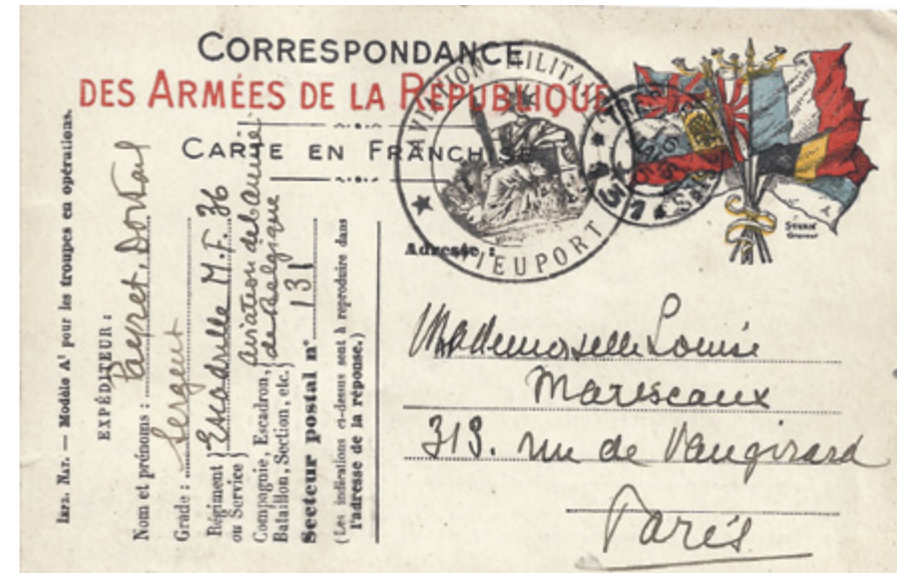 CORRESPONDANCE
DES ARMÉES DE LA RÉPUBLIQUE
CARTE EN FRANCHISE
AVIATION MILITAIRE
NIEUPORT
131
STERN
Graveur
Adresse :
Mademoiselle Louise
Marescaux
313. rue de Vaugirard
Paris
Imp. NAT. — Modèle A¹ pour les troupes en opérations.
EXPÉDITEUR :
Nom et prénoms : Payret. Dortail
Grade : Sergent
Régiment ou Service } Escadrille M.F. 36
Compagnie, Escadron, Bataillon, Section, etc. } aviation de l'armée de Belgique
Secteur postal n° 131
(Les indications ci-dessus sont à reproduire dans
l'adresse de la réponse.)